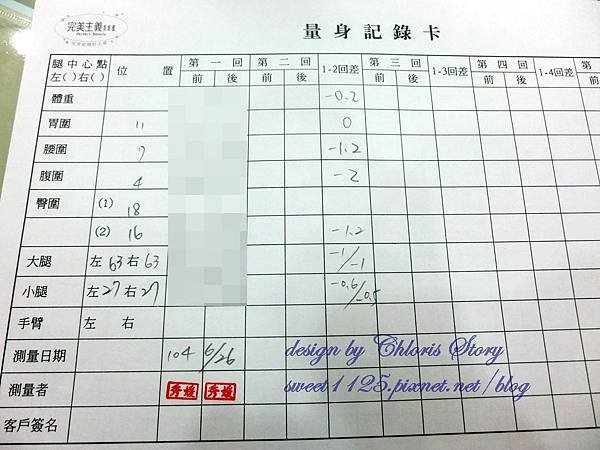 完美主義
Perfect Beauty
量身記錄卡
腿中心點 位置 第一回 第二回 1-2回差 第三回 1-3回差 第四回 1-4回差 第
左( )右( ) 前 後 前 後 前 後 前 後 前
體重 -0.2
胃圍 11 0
腰圍 7 -1.2
腹圍 4 -2
臀圍 (1) 18
(2) 16 -1.2
大腿 左63右63 -1/-1
小腿 左27右27 -0.6/-0.5
手臂 左 右
測量日期 104 6/26
design by Chloris Story
測量者 秀媛 秀媛
sweet1125.pixnet.net/blog
客戶簽名